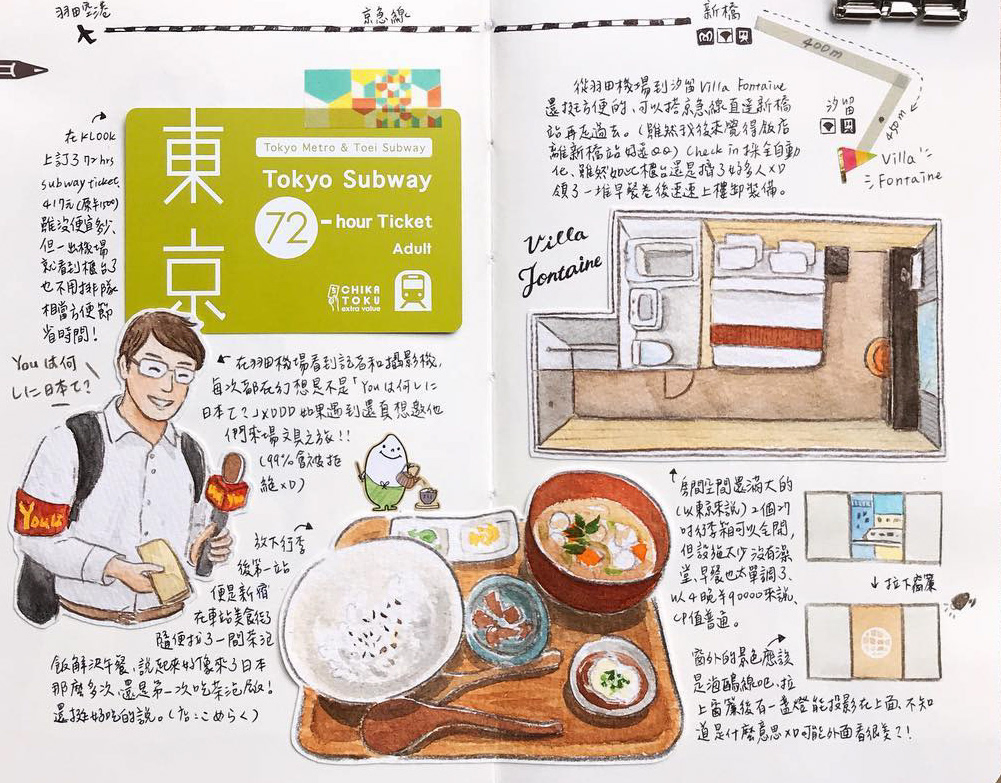 羽田空港
京急線
新橋
400m
450m
汐留
Villa
Fontaine
在KLOOK
上訂了72hrs
subway ticket,
417元(原¥1500)
雖沒便宜多少,
但一出機場
就看到櫃台了
也不用排隊
相當方便節
省時間!
東京
Tokyo Metro & Toei Subway
Tokyo Subway
72-hour Ticket
Adult
CHIKA
TOKU
extra value
從羽田機場到汐留Villa Fontaine
還挺方便的,可以搭京急線直達新橋
站再走過去。(雖然我後來覺得飯店
離新橋站好遠QQ) Check in採全自動
化,雖然如此櫃台還是擠了好多人XD
領了一堆早餐卷後速速上樓卸裝備。
Villa
Fontaine
Youは何
しに日本て?
You は
在羽田機場看到記者和攝影機,
每次都在幻想是不是「Youは何しに
日本て?」XDDD 如果遇到還真想邀他
們來場文具之旅!!
(99%會被拒
絕XD)
放下行李
後第一站
便是新宿
在車站美食街
隨便找了一間茶泡
飯解決午餐,說起來好像來了日本
那麼多次,還是第一次吃茶泡飯!
還挺好吃的說。(だし茶漬け:こめらく)
房間空間還滿大的
(以東京來說) 2個27
吋行李箱可以全開,
但設施太少沒有澡
堂,早餐也太單調了、
以4晚半90000來說,
CP值普通。
↓拉下窗簾
窗外的景色應該
是海鷗線吧,拉
上窗簾後有一盞燈能投影在上面,不知
道是什麼意思XD可能外面看很美?!